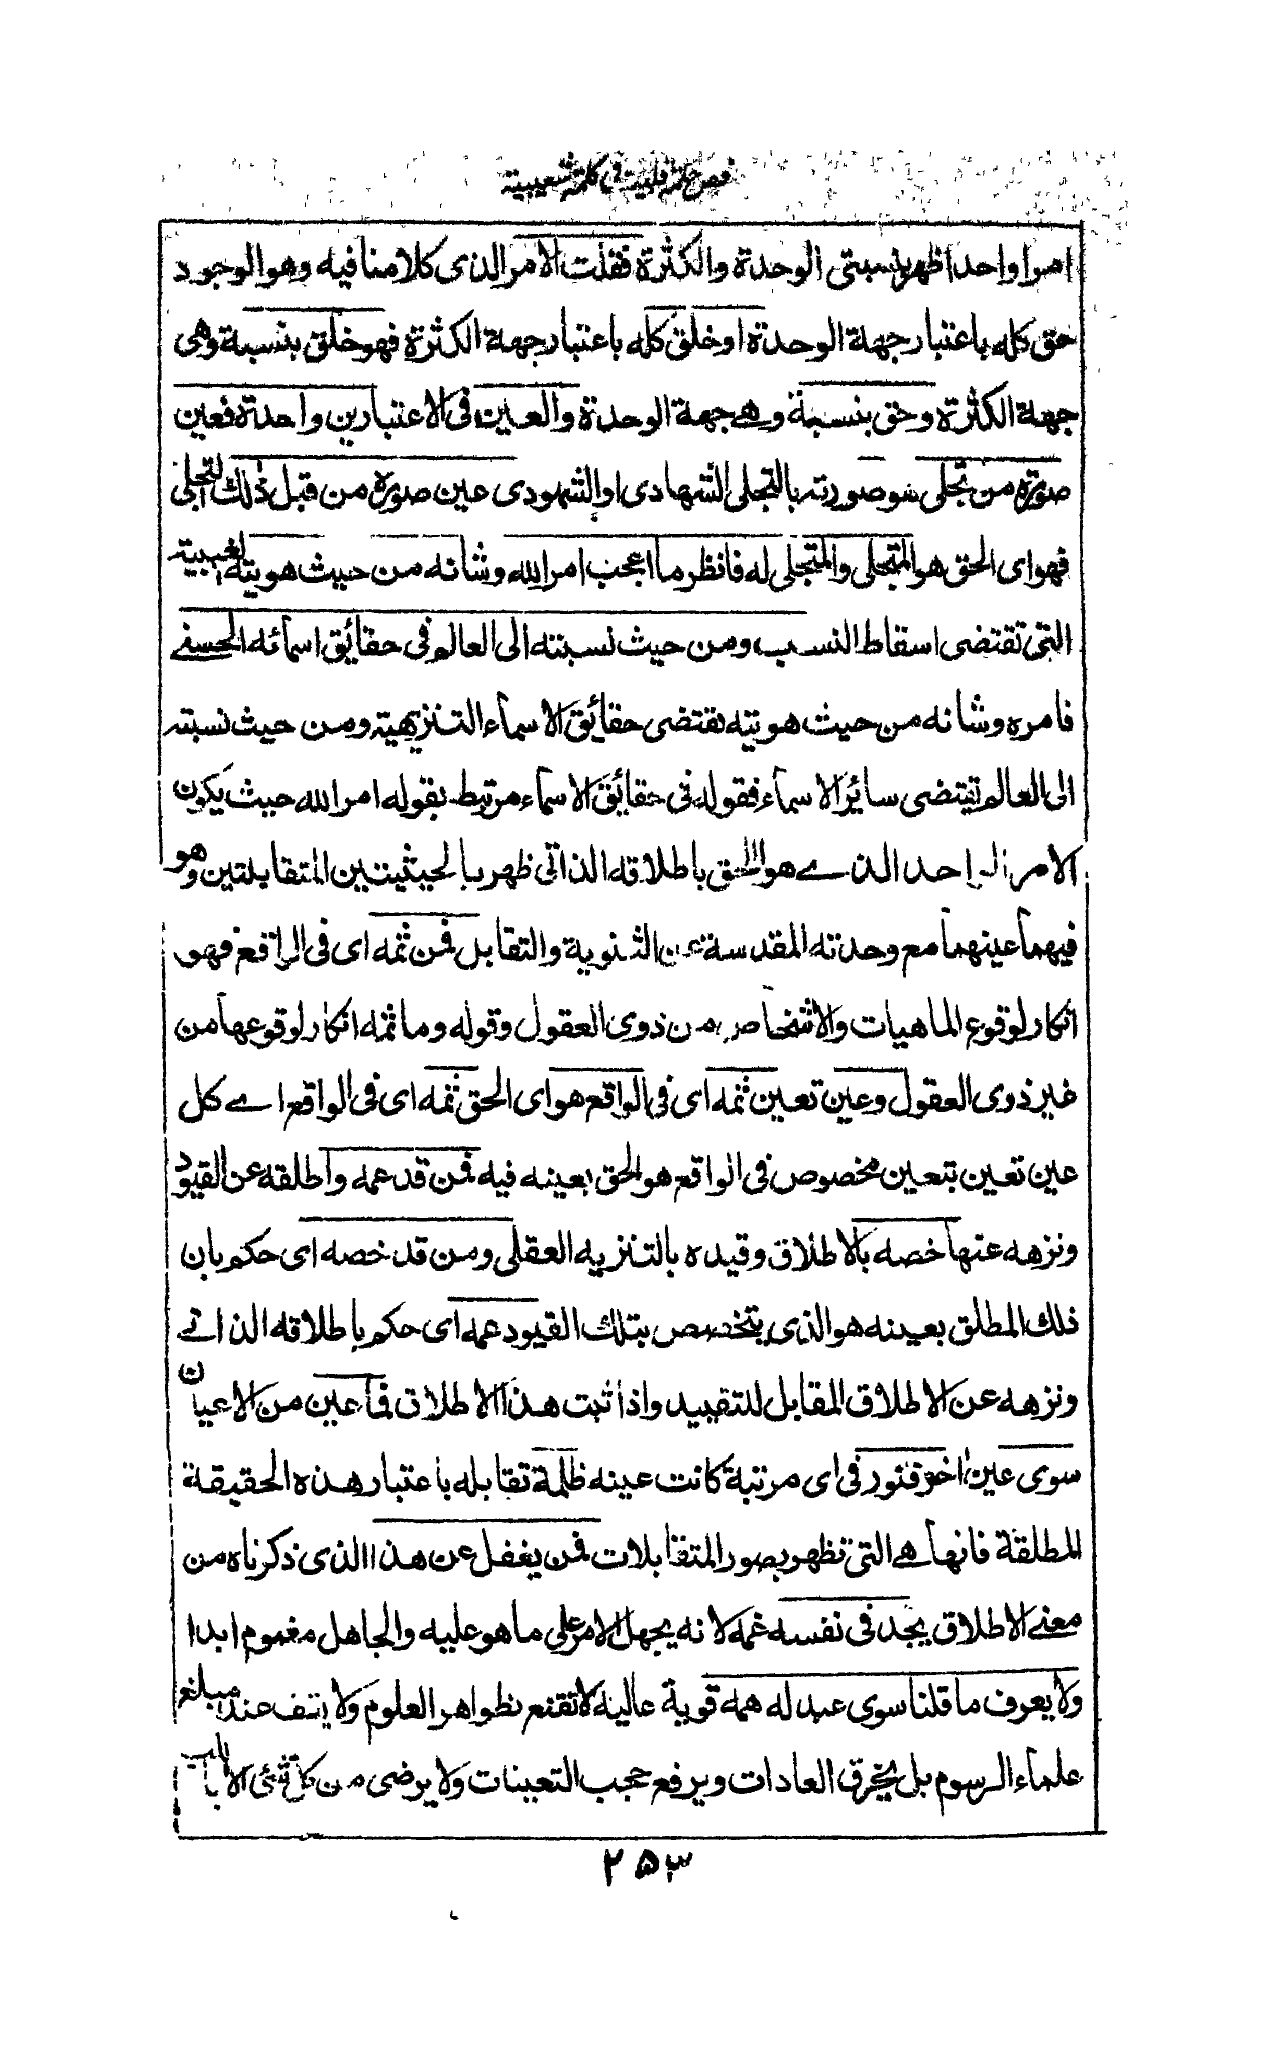 فص حكمة قلبية في كلمة شعيبية
امرا واحدا ظهر بنسبتى الوحدة والكثرة فقلت الامر الذى كلامنا فيه وهو الوجود
حق كله باعتبار جهة الوحدة او خلق كله باعتبار جهة الكثرة فهو خلق بنسبة وهى
جهة الكثرة وحق بنسبة وهے جهة الوحدة والعين فى الاعتبارين واحدة فعين
صورة من تجلى هو صورته بالتجلى الشهادى او الشهودى عين صورة من قبل ذلك التجلى
فهو اى الحق هو المتجلى والمتجلى له فانظر ما اعجب امر الله وشانه من حيث هويته الغيبية
التى تقتضى اسقاط النسب ومن حيث نسبته الى العالم فى حقائق اسمائه الحسنے
فامره وشانه من حيث هويته يقتضى حقائق الاسماء التنزيهية ومن حيث نسبته
الى العالم يقتضى سائر الاسماء فقوله فى حقائق الاسماء مرتبط بقوله امر الله حيث يكون
الامر الواحد الذے هو الحق باطلاقه الذاتى ظهر بالحيثيتين المتقابلتين وهو
فيهما عينهما مع وحدته المقدسة عن الثنوية والتقابل فمن ثمه اى فى الواقع فهو
انكار لوقوع الماهيات والاشخاص من ذوى العقول وقوله وما ثمه انكار لوقوعها من
غير ذوى العقول وعين تعين ثمه اى فى الواقع هو اى الحق ثمه اى فى الواقع اے كل
عين تعين بتعين مخصوص فى الواقع هو الحق بعينه فيه فمن قد عمه واطلقه عن القيود
ونزهه عنها خصه بالاطلاق وقيده بالتنزيه العقلى ومن قد خصه اى حكم بان
ذلك المطلق بعينه هو الذى يتخصص بتلك القيود عمه اى حكم باطلاقه الذاتے
ونزهه عن الاطلاق المقابل للتقييد واذا ثبت هذا الاطلاق فما عين من الاعيان
سوى عين اخر فنور فى اى مرتبة كانت عينه ظلمة تقابله باعتبار هذه الحقيقة
المطلقة فانها هے التى تظهر بصور المتقابلات فمن يغفل عن هذا الذى ذكرناه من
معنے الاطلاق يجد فى نفسه غمه لانه يجهل الامر على ما هو عليه والجاهل مغموم ابدا
ولا يعرف ما قلنا سوى عبد له همه قوية عالية لا تقنع بظواهر العلوم ولا يقف عند مبلغ
علماء الرسوم بل يخرق العادات ويرفع حجب التعينات ولا يرضى من كل شئ الا باللب
۲۵۳